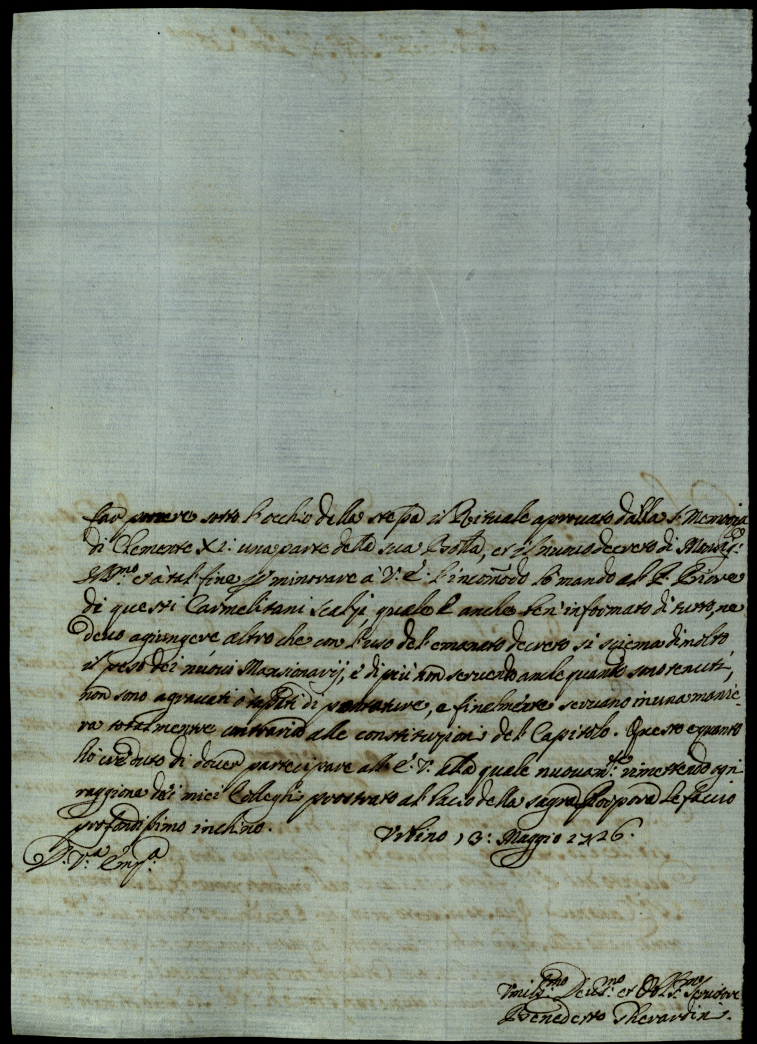 far porre sotto l'occhio della stessa il Rituale aprovato dalla S. Memoria
di Clemente XI: una parte della sua Bolla, et il nuovo decreto di Monsig.
Ill.mo et à tal fine p minorare à V. E. l'incomodo lo mando al P. Priore
di questi Carmelitani Scalzi, quale è anche ben informato di tutto, ne
devo agiungere altro che con l'uso del emanato decreto si sciema di molto
il peso dei nuovi Mansionarij, e di più non servendo anche quando sono tenuti,
non sono agravati di puntature, e finalmente servono in una manie-
ra totalmente contraria alle constitutioni del Capitolo. Questo è quanto
hò creduto di dover partecipare all' E. V. alla quale nuovam.e rimettendo ogni
raggione dei miei Colleghi prostrato al bacio della sagra Porpora le faccio
profondissimo inchino. Urbino 13: Maggio 1726.
D. V.a Em.a
Umiliss.mo Devot.mo et Obl.mo Servitore
Benedetto